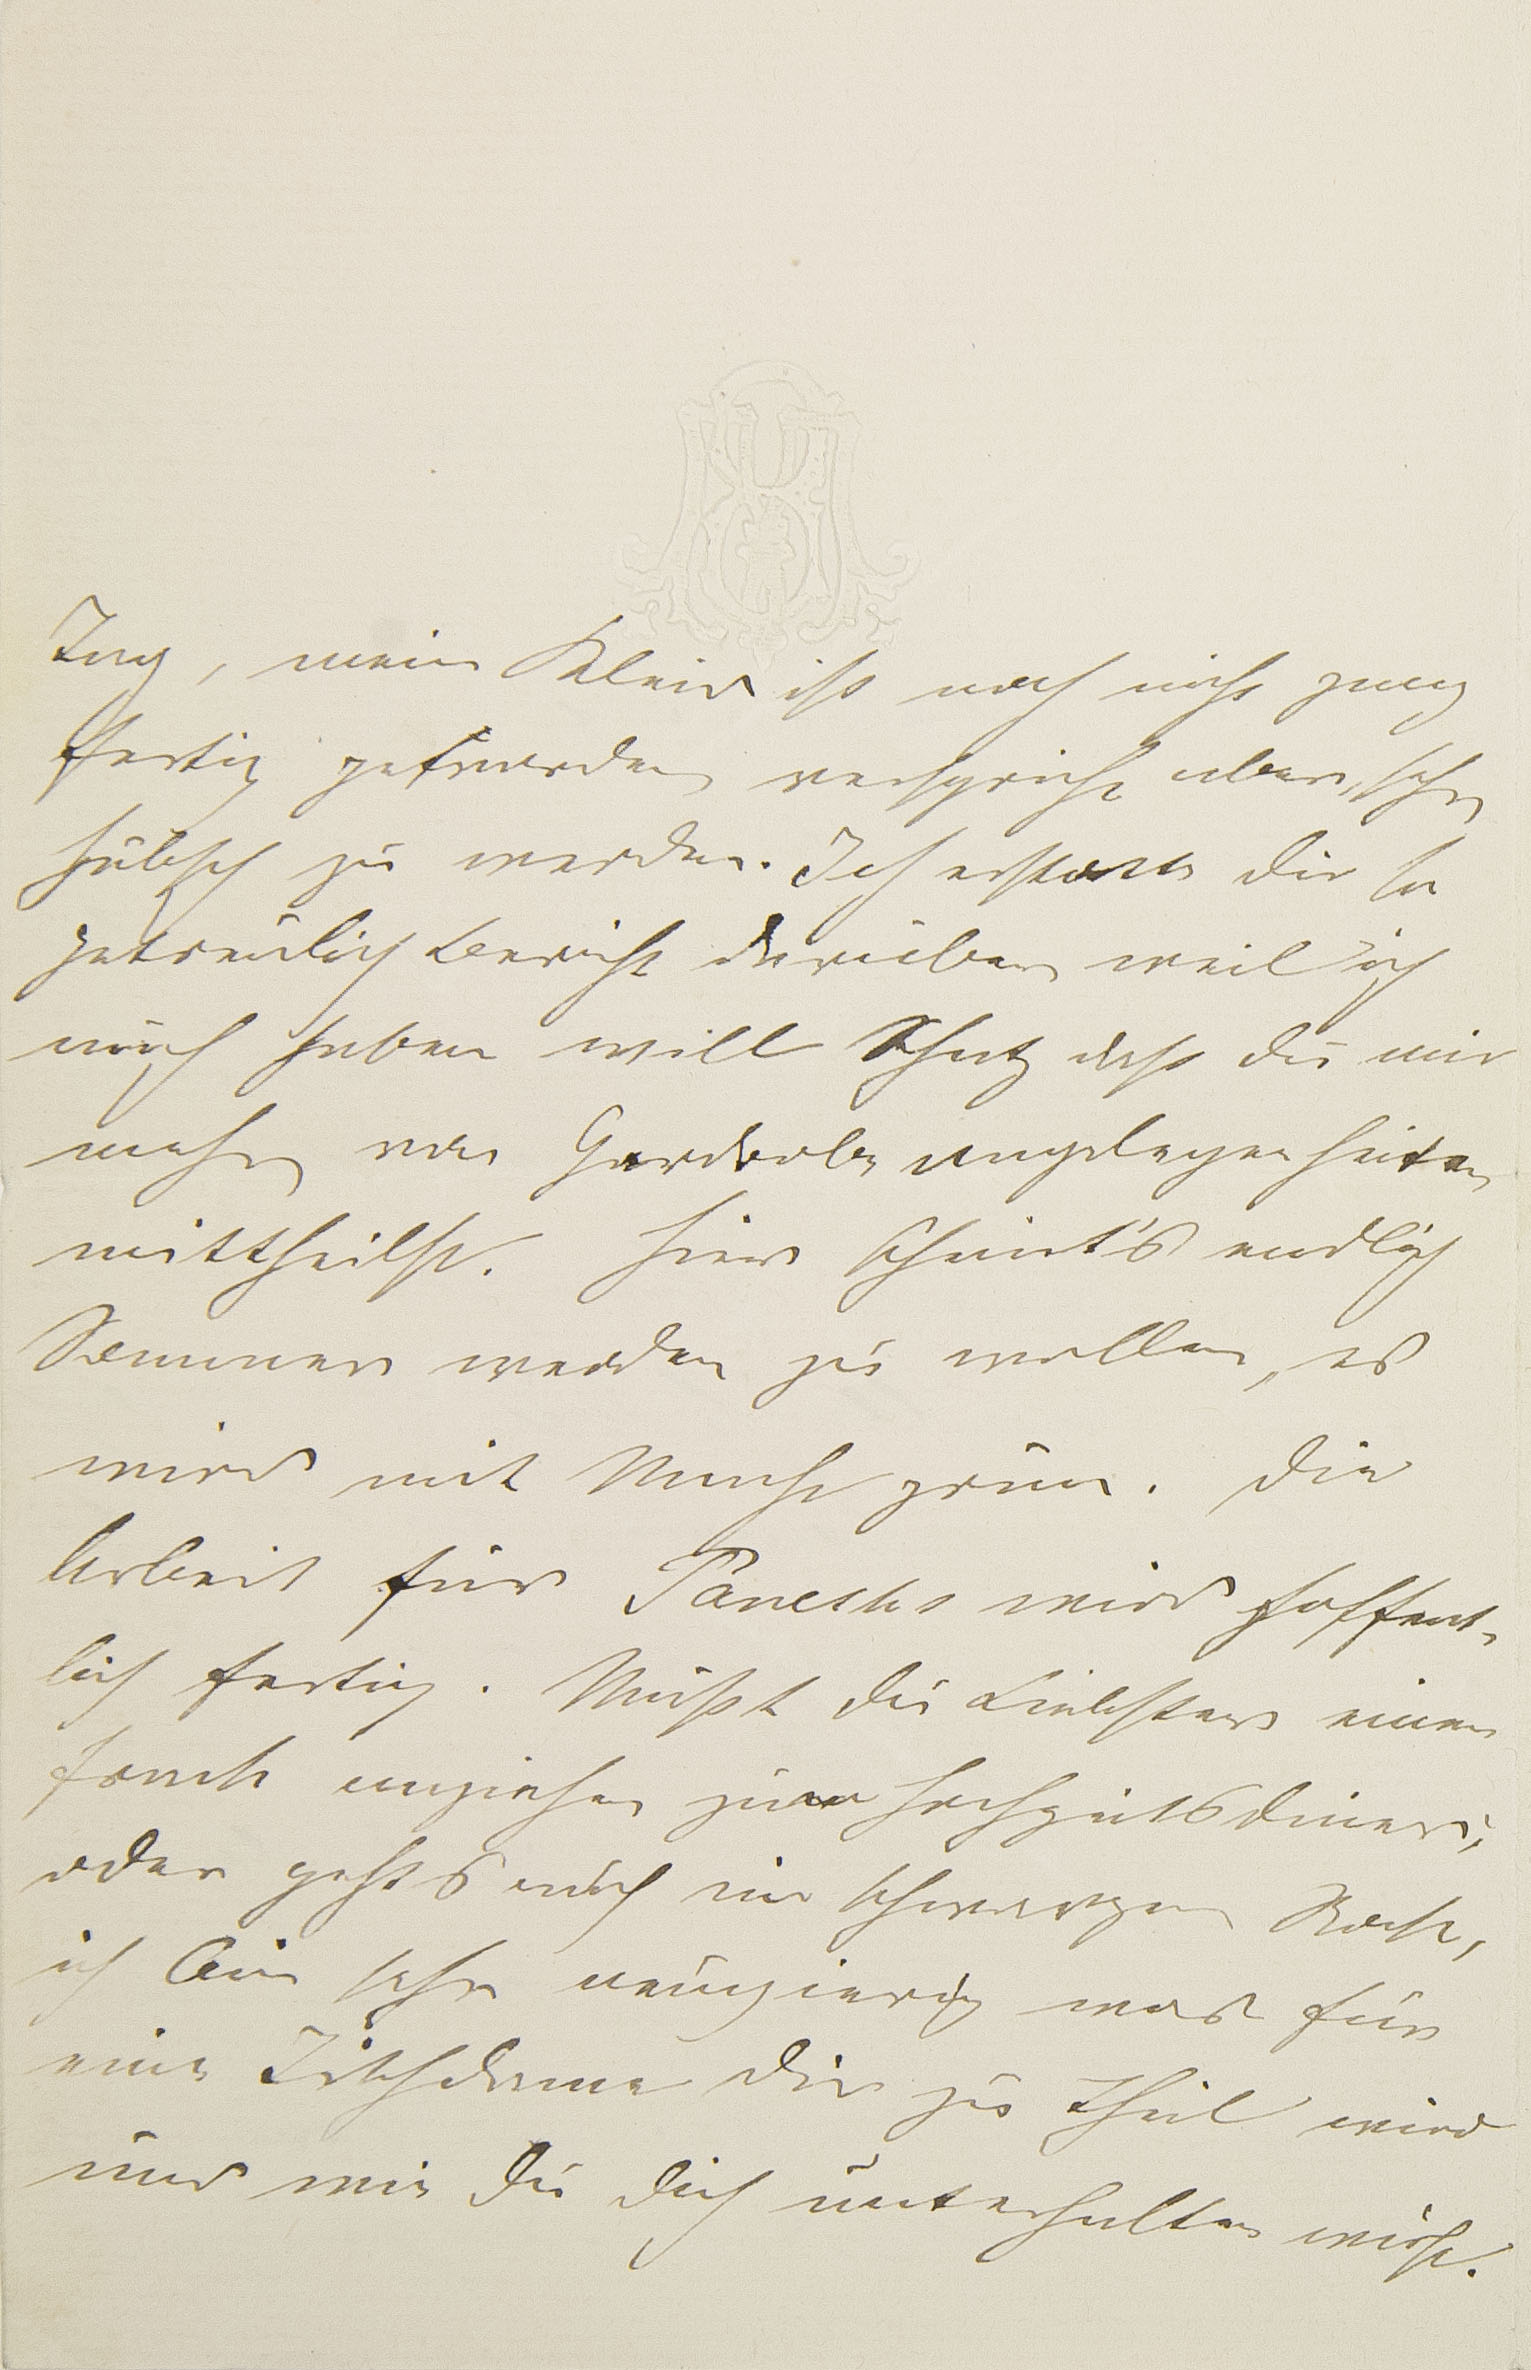 Tag, mein Kleid ist noch nicht ganz
fertig geworden verspricht aber, sehr
hübsch zu werden. Ich erstatte dir so
getreulich Bericht darüber weil ich
auch haben will Schatz daß du mir
mehr von Garderobeangelegenheiten
mittheilst. Hier scheint's endlich
Sommer werden zu wollen, es
wird mit Macht grün. Die
Arbeit für Paneths wird hoffent-
lich fertig. Mußt du Liebster einen
Frack anziehen zum Hochzeitsdiner,
oder gehts auch im schwarzen Rock,
ich bin sehr neugierig was für
eine Tischdame dir zu Theil wird
und wie du dich unterhalten wirst.